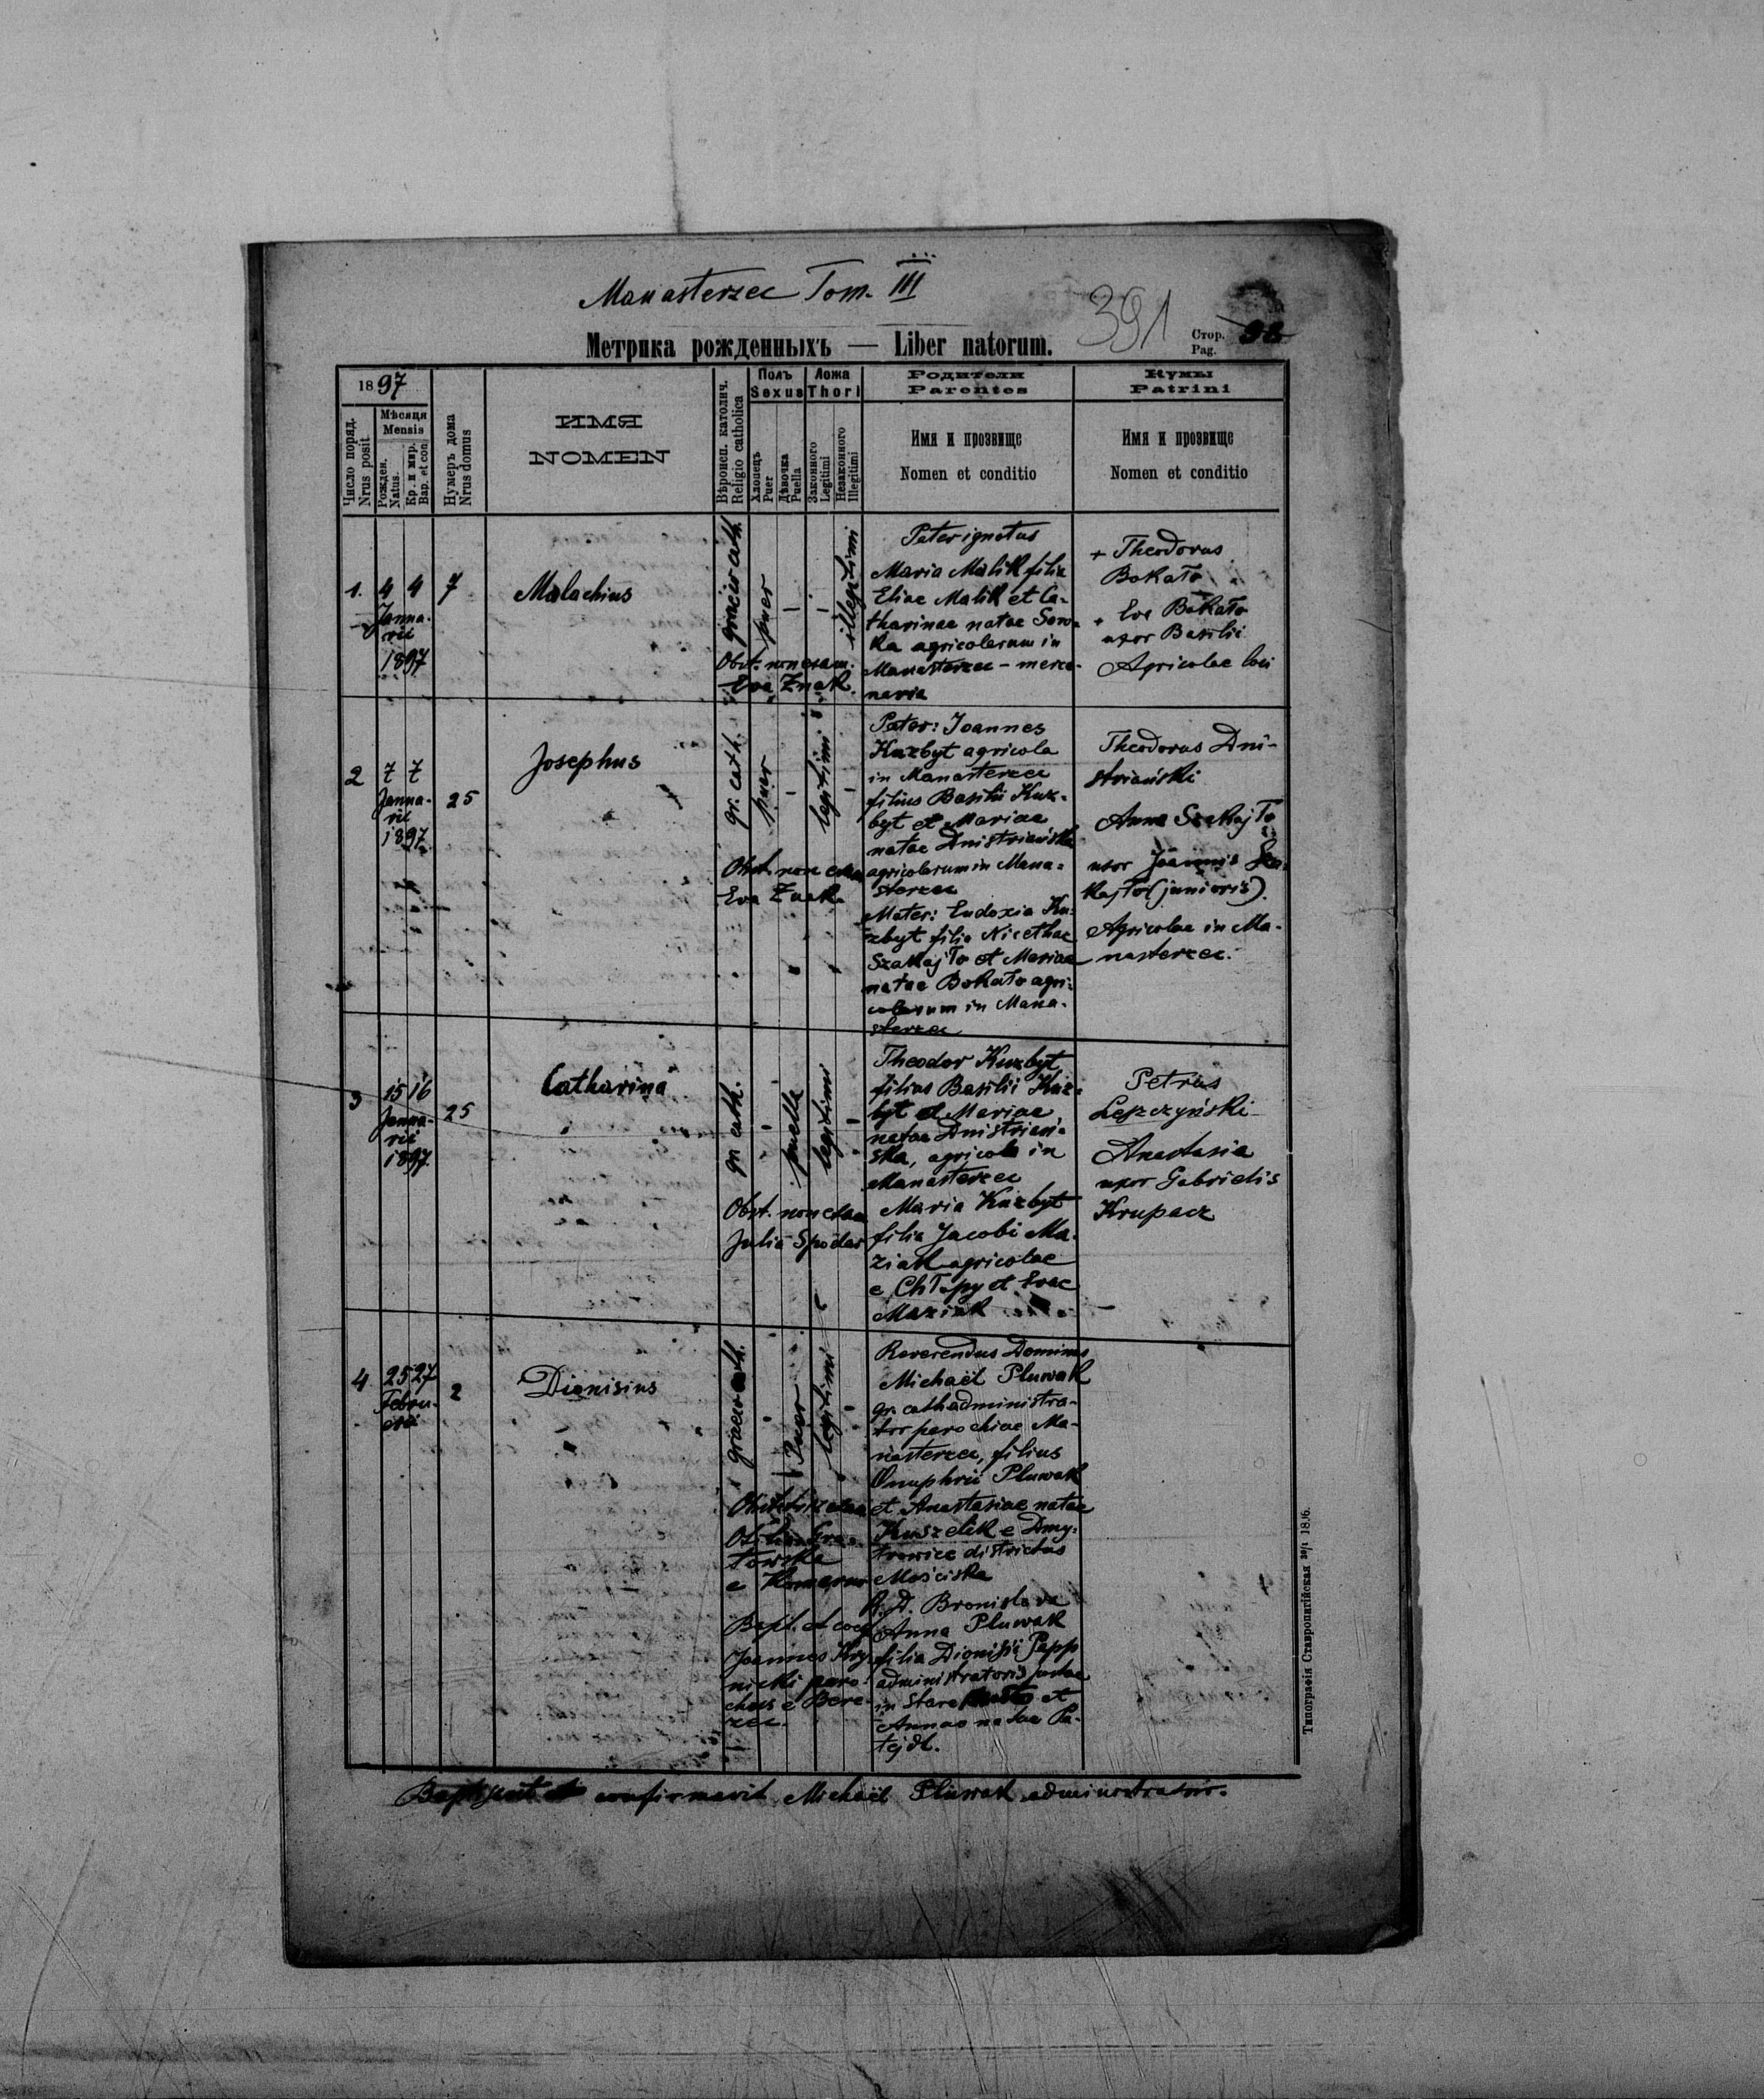 Manasterzec Tom. III
391
Метрика рожденныхъ — Liber natorum.
Стор.
Pag. 98
1897
Число поряд.
Nrus posit.
Мѣсяця
Mensis
Рожден.
Natus.
Кр. и мир.
Bap. et con.
Нумеръ дома
Nrus domus
ИМЯ
NOMEN
Вѣроисп. католич.
Religio catholica
Полъ
Sexus
Хлопецъ
Puer
Дѣвочка
Puella
Ложа
Thori
Законного
Legitimi
Незаконного
Illegitimi
Родители
Parentes
Имя и прозвище
Nomen et conditio
Кумы
Patrini
Имя и прозвище
Nomen et conditio
1. 4 4 7
Janua-
rii
1897
Malachius
graeco cath.
puer
illegitimi
Obst. non exam.
Eva Znak.
Pater ignotus
Maria Malik filia
Eliae Malik et Ca-
tharinae natae Sow-
ka agricolarum in
Manasterzec – merce-
naria
+ Theodorus
Bokało
+ Eva Bokało
uxor Basilii
Agricolae loci
2 7 7 25
Janua-
rii
1897
Josephus
gr. cath.
puer
legitimi
Obst. non exam
Eva Znak.
Pater: Joannes
Kuzbyt agricola
in Manasterzec
filius Basilii Kuz-
byt et Mariae
natae Dnistriańska
agricolarum in Mana-
sterzec
Mater: Eudoxia Ku-
zbyt filia Nicethae
Szakajło et Mariae
natae Bokało agri-
colarum in Mana-
sterzec
Theodorus Dni-
striański
Anna Szakajło
uxor Joannis Sza-
kajło (junioris).
Agricolae in Ma-
nasterzec.
3 15 16 25
Janua-
rii
1897
Catharina
gr. cath.
puella
legitimi
Obst. non exam
Julia Spodar
Theodor Kuzbyt
filius Basilii Kuz-
byt et Mariae
natae Dnistriań-
ska, agricola in
Manasterzec
Maria Kuzbyt
filia Jacobi Ma-
ziak agricolae
e Chłopy et Evae
Maziak
Petrus
Leszczyński
Anastasia
uxor Gabrielis
Krupacz
4 25 27 2
Febru-
arii
Dionisius
graeco cath.
Puer
legitimi
Obstetrix exam
towska
e Komarno
Bapt. et conf.
Joannes Kry-
nicki paro-
chus e Bere-
zec.
Reverendus Dominus
Michaël Pluwak
gr. cath administra-
tor parochiae Ma-
nasterzec, filius
Onuphrii Pluwak
et Anastasiae natae
Kuszelik e Dmy-
trowice districtus
Mościska
R. D. Bronislava
Anna Pluwak
filia Dionisii Papp
administratoris
in Stare et
Annae natae Pa-
tejdl.
Baptizavit et confirmavit Michaël Pluwak administrator.
Типографія Ставропигійская